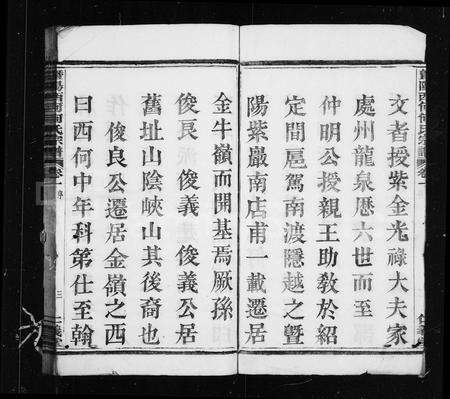 文者授紫金光祿大夫家
處州龍泉歷六世而至
仲明公授親王助教於紹
定間扈駕南渡隱越之暨
陽紫巖南店甫一載遷居
金牛嶺而開基焉厥孫
俊良 俊義 俊義公居
舊址山陰峽山其後裔也
俊良公遷居金嶺之西
曰西何中年科第仕至翰